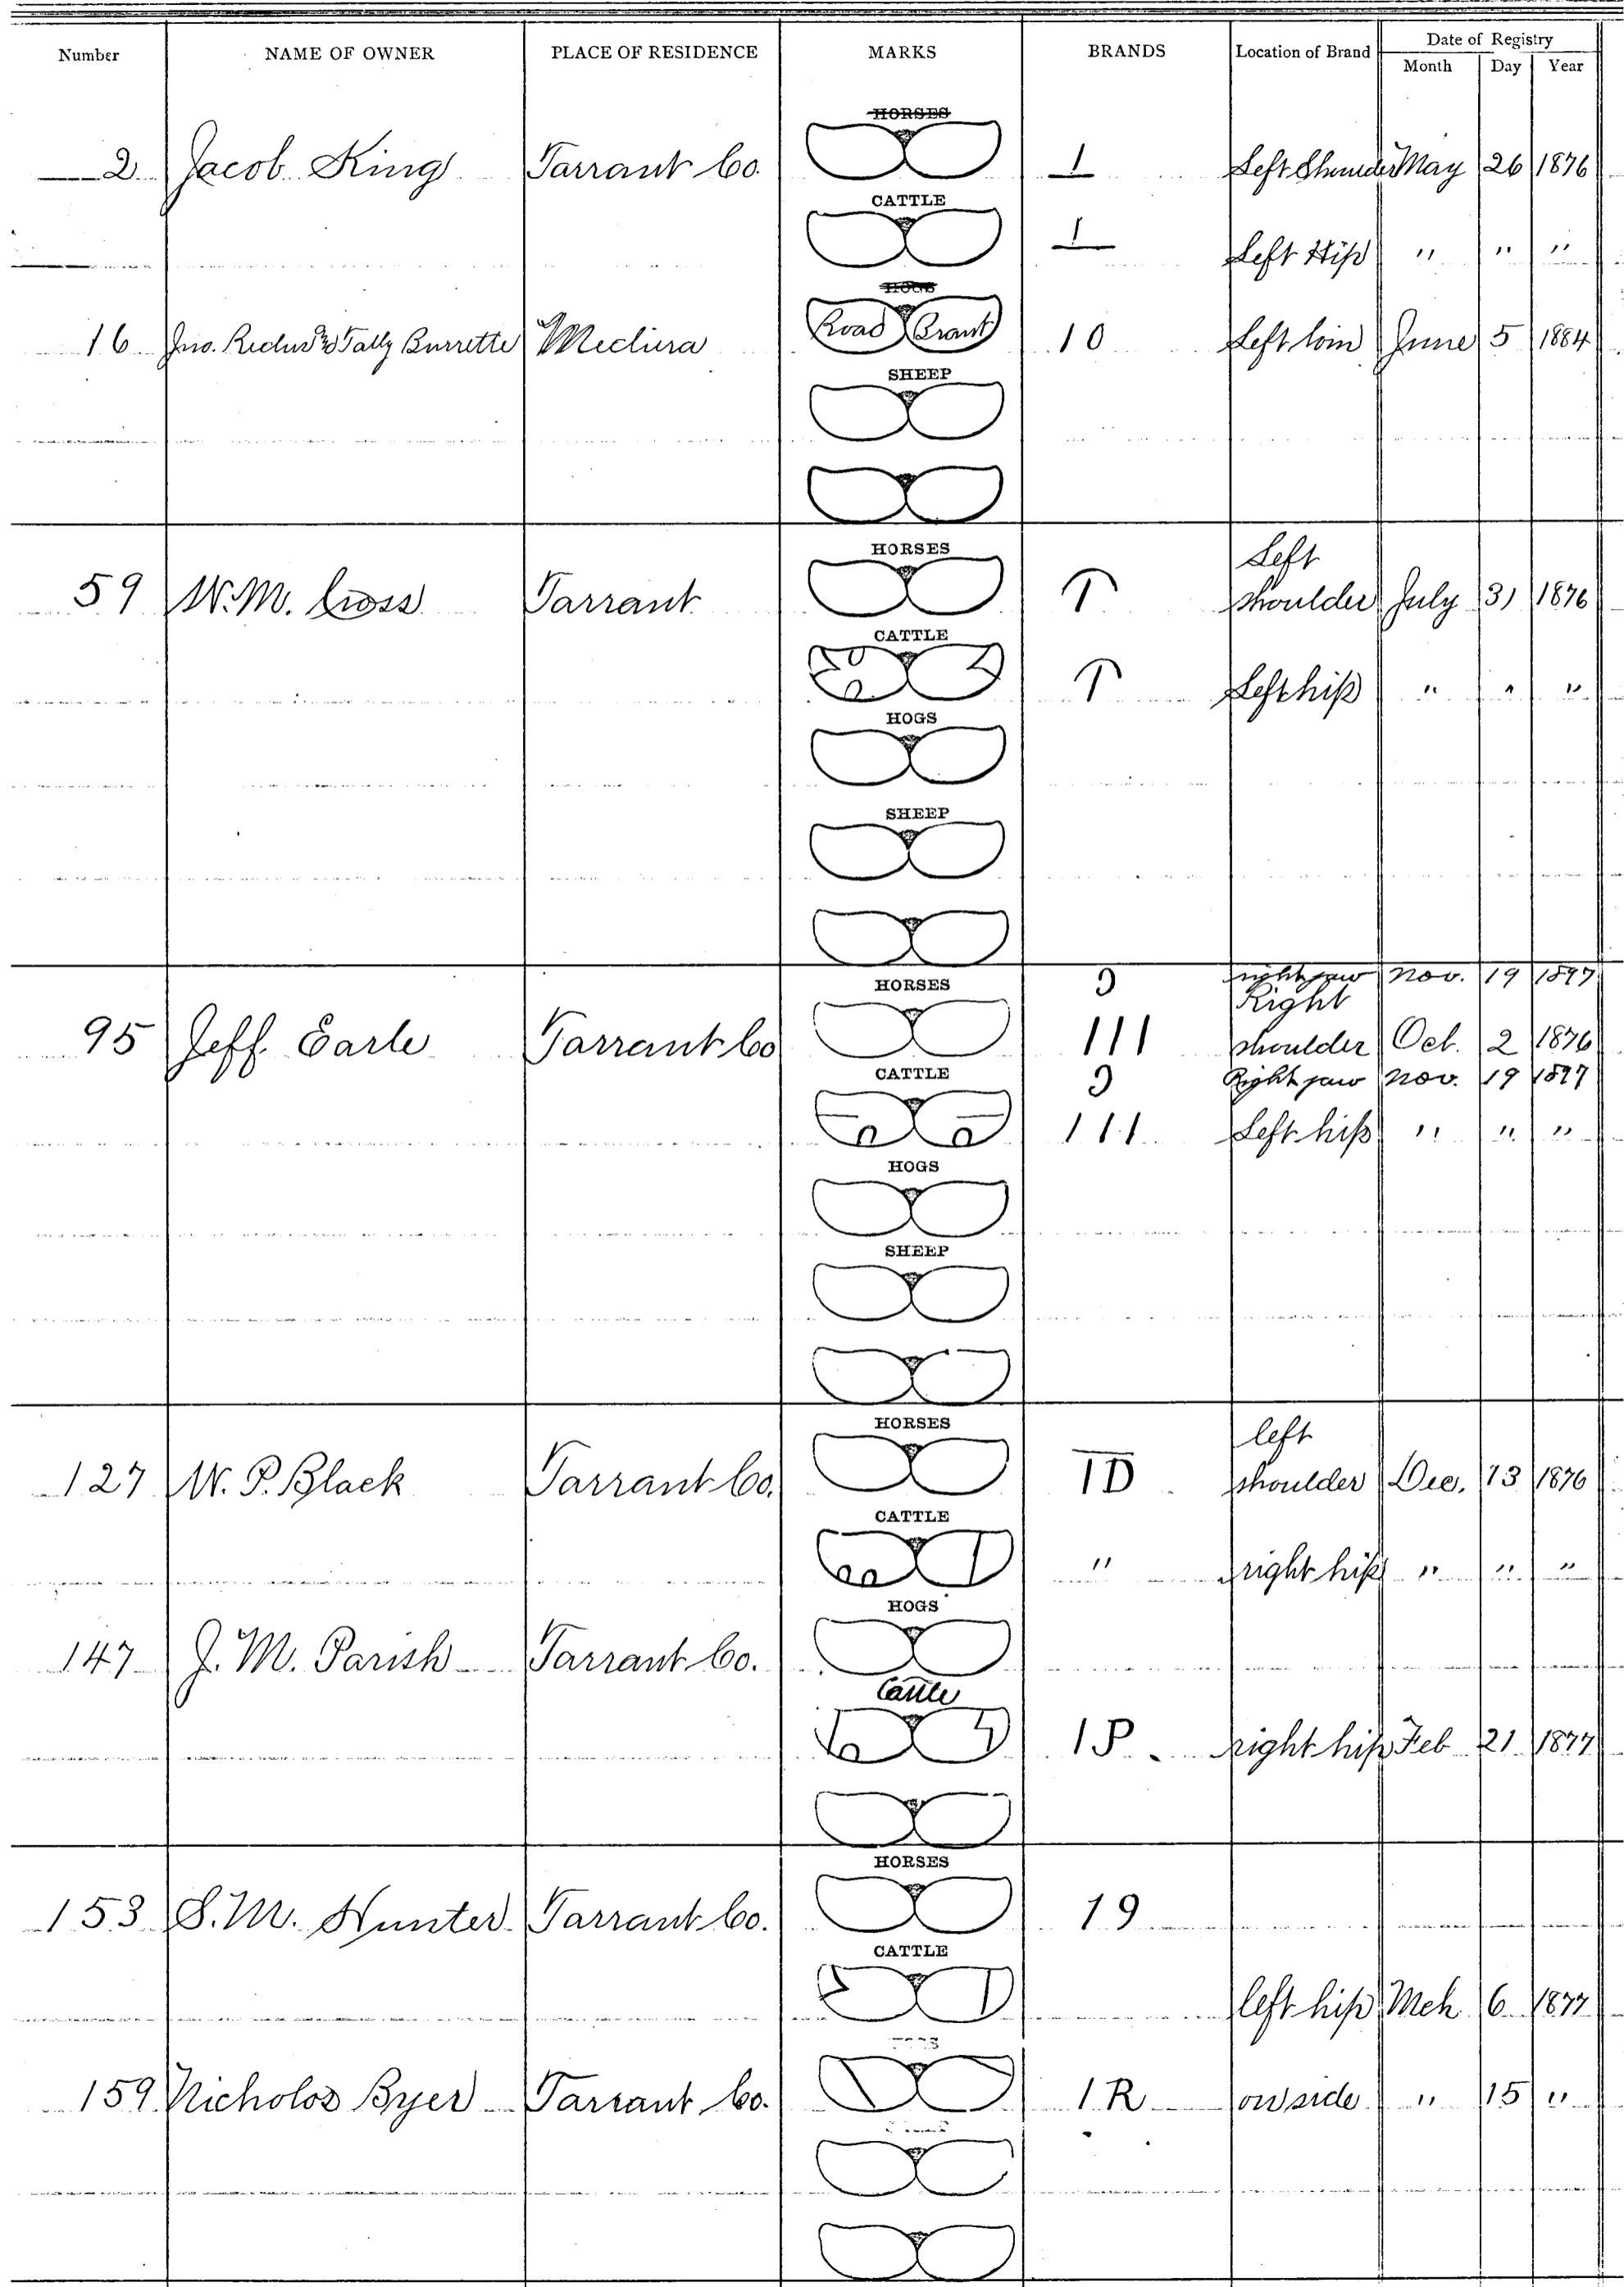 Number NAME OF OWNER PLACE OF RESIDENCE MARKS BRANDS Location of Brand Date of Registry
Month Day Year
HORSES
2 Jacob King Tarrant Co. 1 Left Shoulder May 26 1876
CATTLE
1 Left Hip " " "
HOGS
16 Jno. Redus & Tally Burrette Medina Road Brand 10 Left loin June 5 1884
SHEEP
HORSES
Left
59 W. M. Cross Tarrant shoulder July 31 1876
CATTLE
Left hip " " "
HOGS
SHEEP
right jaw Nov. 19 1897
HORSES
Right
95 Jeff. Earle Tarrant Co 111 shoulder Oct. 2 1876
CATTLE
Right jaw Nov. 19 1897
111 Left hip " " "
HOGS
SHEEP
HORSES
left
127 W. P. Black Tarrant Co. TD shoulder Dec. 13 1876
CATTLE
" right hip " " "
HOGS
147 J. M. Parish Tarrant Co.
Cattle
1P. right hip Feb 21 1877
HORSES
153 S. M. Hunter Tarrant Co. 19
CATTLE
left hip Mch 6 1877
159 Nicholos Byer Tarrant Co. 1R on side " 15 "